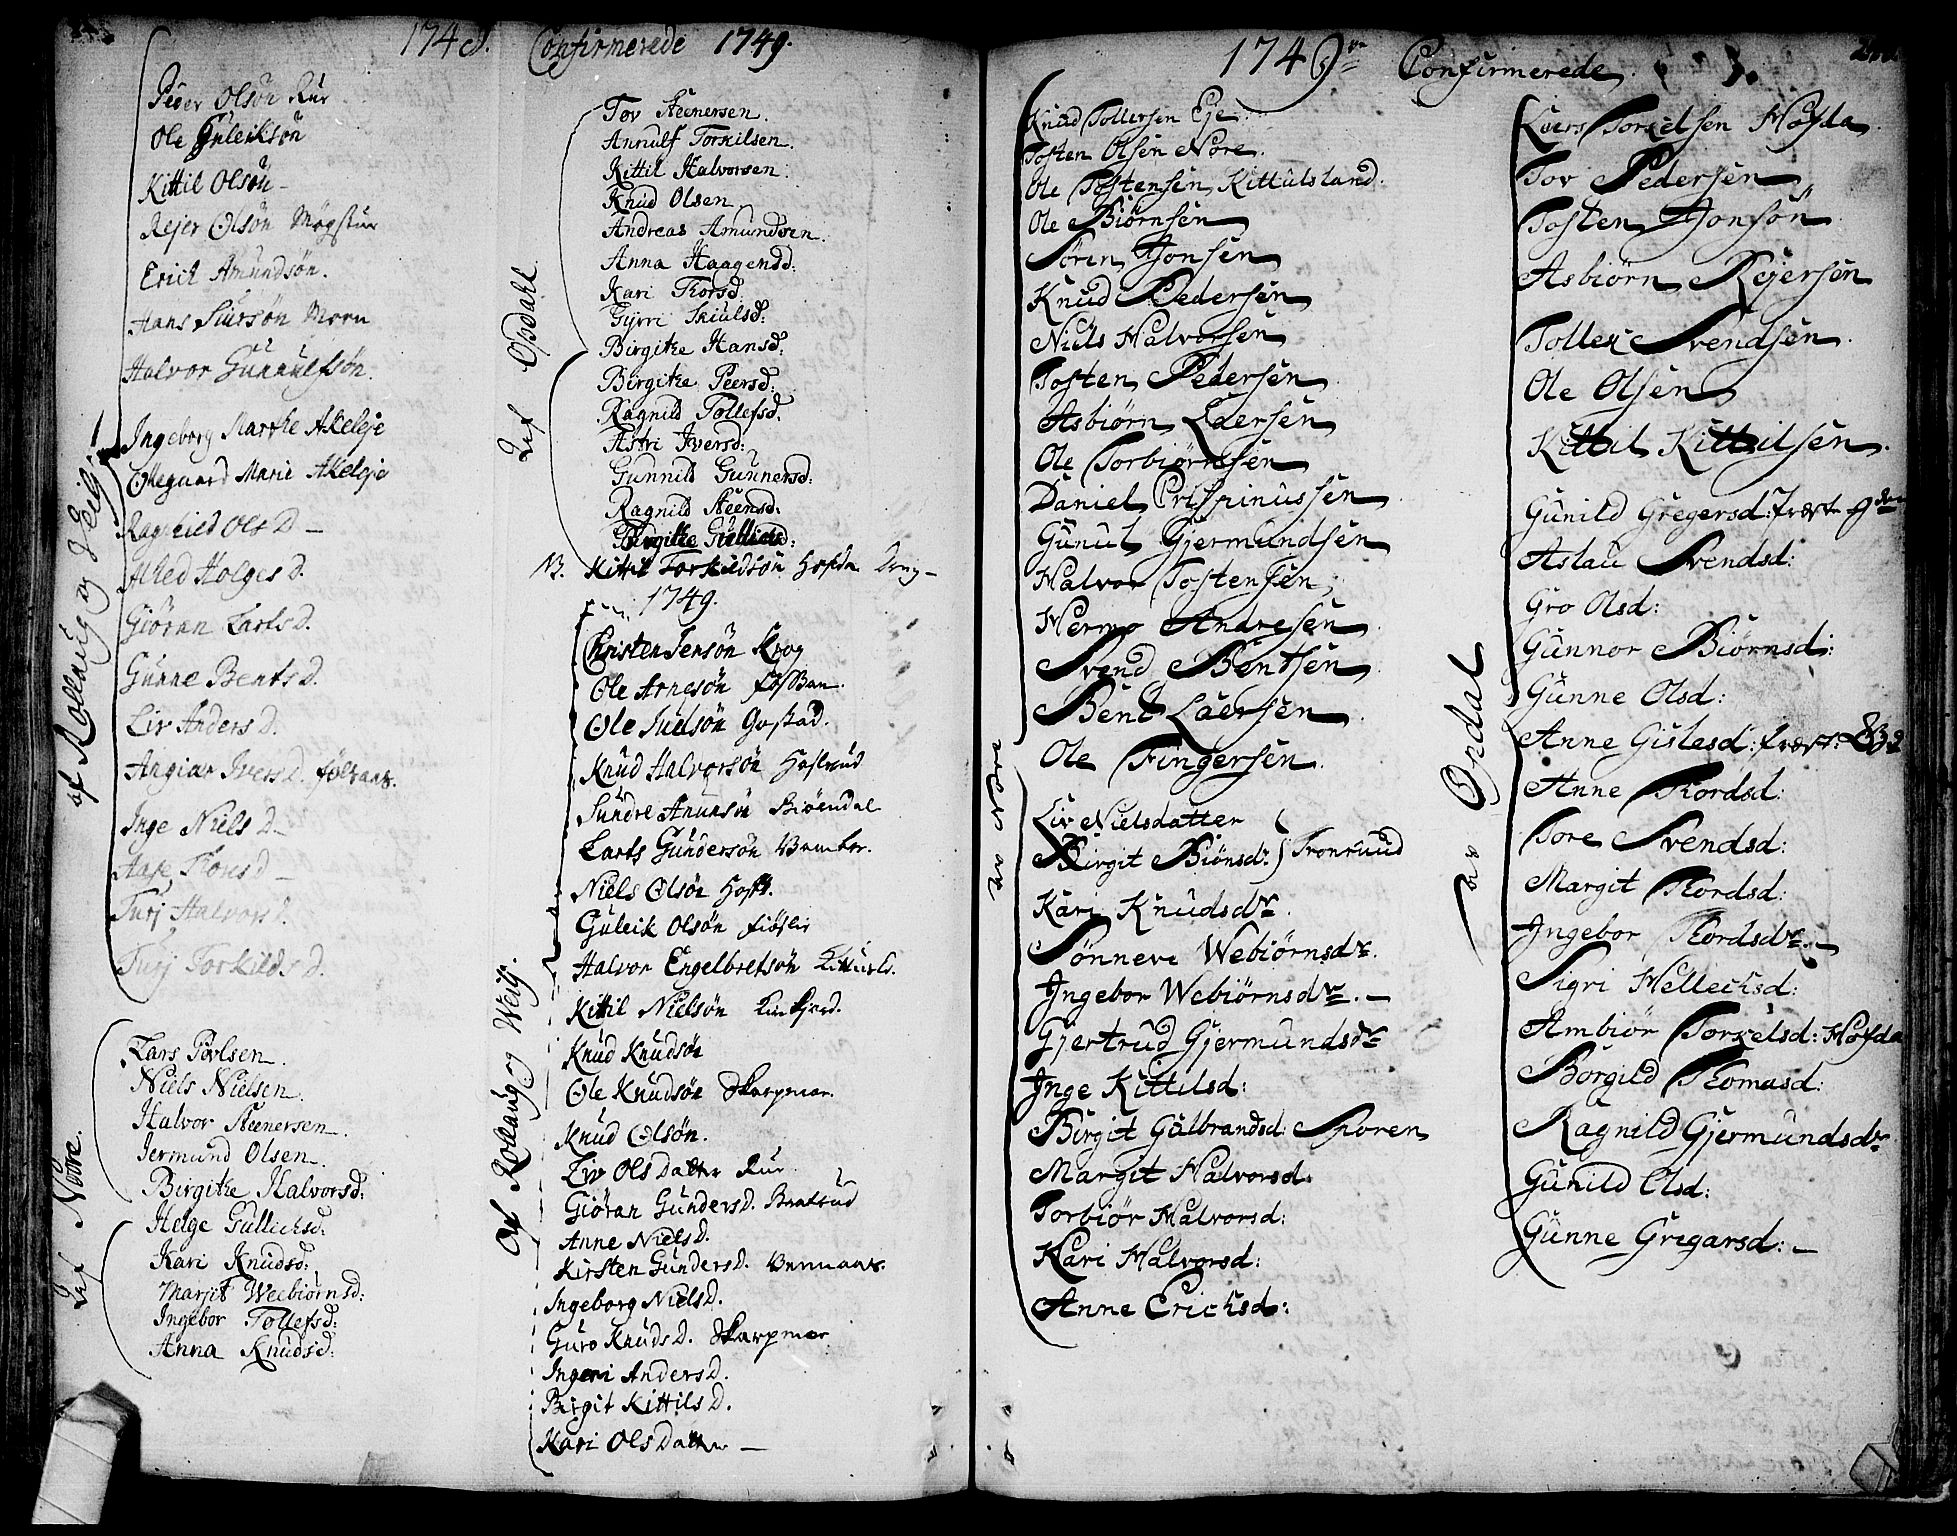 1748. Confirmerede 1749.
af Rollaug og Veig.
Peder Olsøn Rur
Ole Guleiksøn
Kittil Olsøn -
Rejer Olsøn Mogstue
Erich Amundsøn.
Hans Siursøn Moen
Halvor Gunnulfsøn.
Ingeborg Marthe Akeleje
Ollegaard Marie Akeleje
Ragnhild Ols D -
Alhed Holges D.
Giöran Lars D.
Gunne Bents D.
Liv Anders D.
Angier Ivers D.
Inge Niels D -
Aase Thons D -
Turj Halvors D.
Turj Torkilds D.
Af Nore.
Lars Povlsen.
Niels Nielsen.
Halvor Steenersen.
Jermund Olsen.
Birgitke Halvorsd:
Helge Gullechsd:
Kari Knudsd:
Marjit Weebiørnsd:
Ingebor Tollefsd:
Anna Knudsd:
Af Opdahl
Tov Steenersen.
Annulf Torkilsen.
Kittil Halvorsen.
Knud Olsen.
Andreas Amundsen.
Anna Haagensd:
Kari Thorsd.
Gyrri Skiulsd:
Birgitke Hansd:
Birgitke Peersd:
Ragnild Tollefsd.
Astri Iversd:
Gunnild Gunnersd:
Ragnild Steensd:
Birgitke
NB. Kittil Torkildsøn Hofda Dreng -
1749.
Af Rollaug og Weig.
Christen Jensøn Krog
Ole Arnesøn
Ole Juelsøn Gostad.
Knud Halvorsøn
Sundre Amunsøn
Lars Gundersøn
Niels Olsøn
Guleik Olsøn
Halvor Engelbretsøn Kittiusl.
Kittil Nielsøn
Knud Knudsøn
Ole Knudsøn Skarpmoe.
Knud Olsøn.
Liv Ols Datter Rur
Giöran Gunders D.
Anne Niels D.
Kirsten Gunders D.
Ingeborg Niels D.
Guro Knuds D. Skarpmoe
Ingeri Anders D.
Birgit Kittils D.
Kari Ols Datter -
1749 Confirmerede
av Nore
Knud Tollersen Eje
Tosten Olsen Nore.
Ole Tostensen Kittulsland.
Ole Biørnsen
Søren Jonsen
Knud Pedersen
Niels Halvorsen
Tosten Pedersen
Asbiørn Laersen
Ole Torbiørnsen
Daniel Crispinussen
Gunul Gjermundsen
Halvor Tostensen
Hermo Andresen
Svend Bentsen
Bent Laersen
Ole Fingersen.
Liv Nielsdatter
Birgit Biönsd: } Tronruud
Kari Knudsdr.
Sönneve Webiørnsdr.
Ingebor Webiørnsdr. -
Gjertrud Gjermundsdr
Inge Kittilsd:
Birgit Gulbrandsd: Sporen
Margit Halvorsd:
Torbiör Halvorsd:
Kari Halvorsd:
Anne Erichsd:
av Opdal
Laers Torkelsen Hofda
Tov Pedersen
Tosten Jonsøn
Asbiørn Rejersen
Tollek Svendsen.
Ole Olsen
Kittil Kittilsen.
Gunild Gregersd:
Aslau Svendsd:
Gro Olsd:
Gunnor Biörnsd:
Gunne Olsd:
Anne Gislesd:
Anne Thordsd:
Tore Svendsd:
Margit Thordsd:
Ingebor Thordsdr. -
Sigri Hellechsd:
Ambiör Torkelsd: Hofda
Borgild Thomasd:
Ragnild Gjermundsdr
Gunild Olsd:
Gunne Grigarsd: -